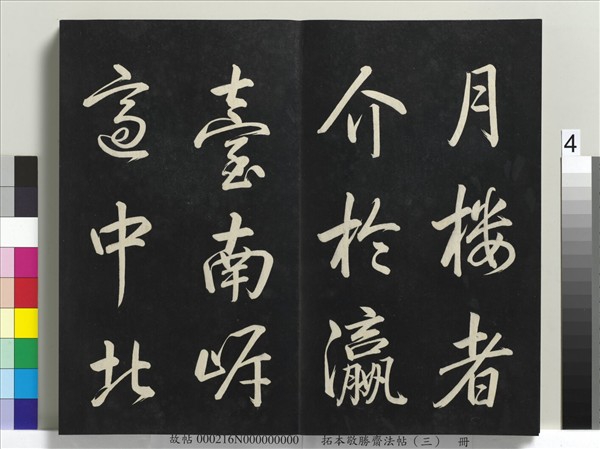 月楼者
介於瀛
臺南岸
適中北
4
故帖 000216N000000000 拓本敬勝齋法帖(三) 冊